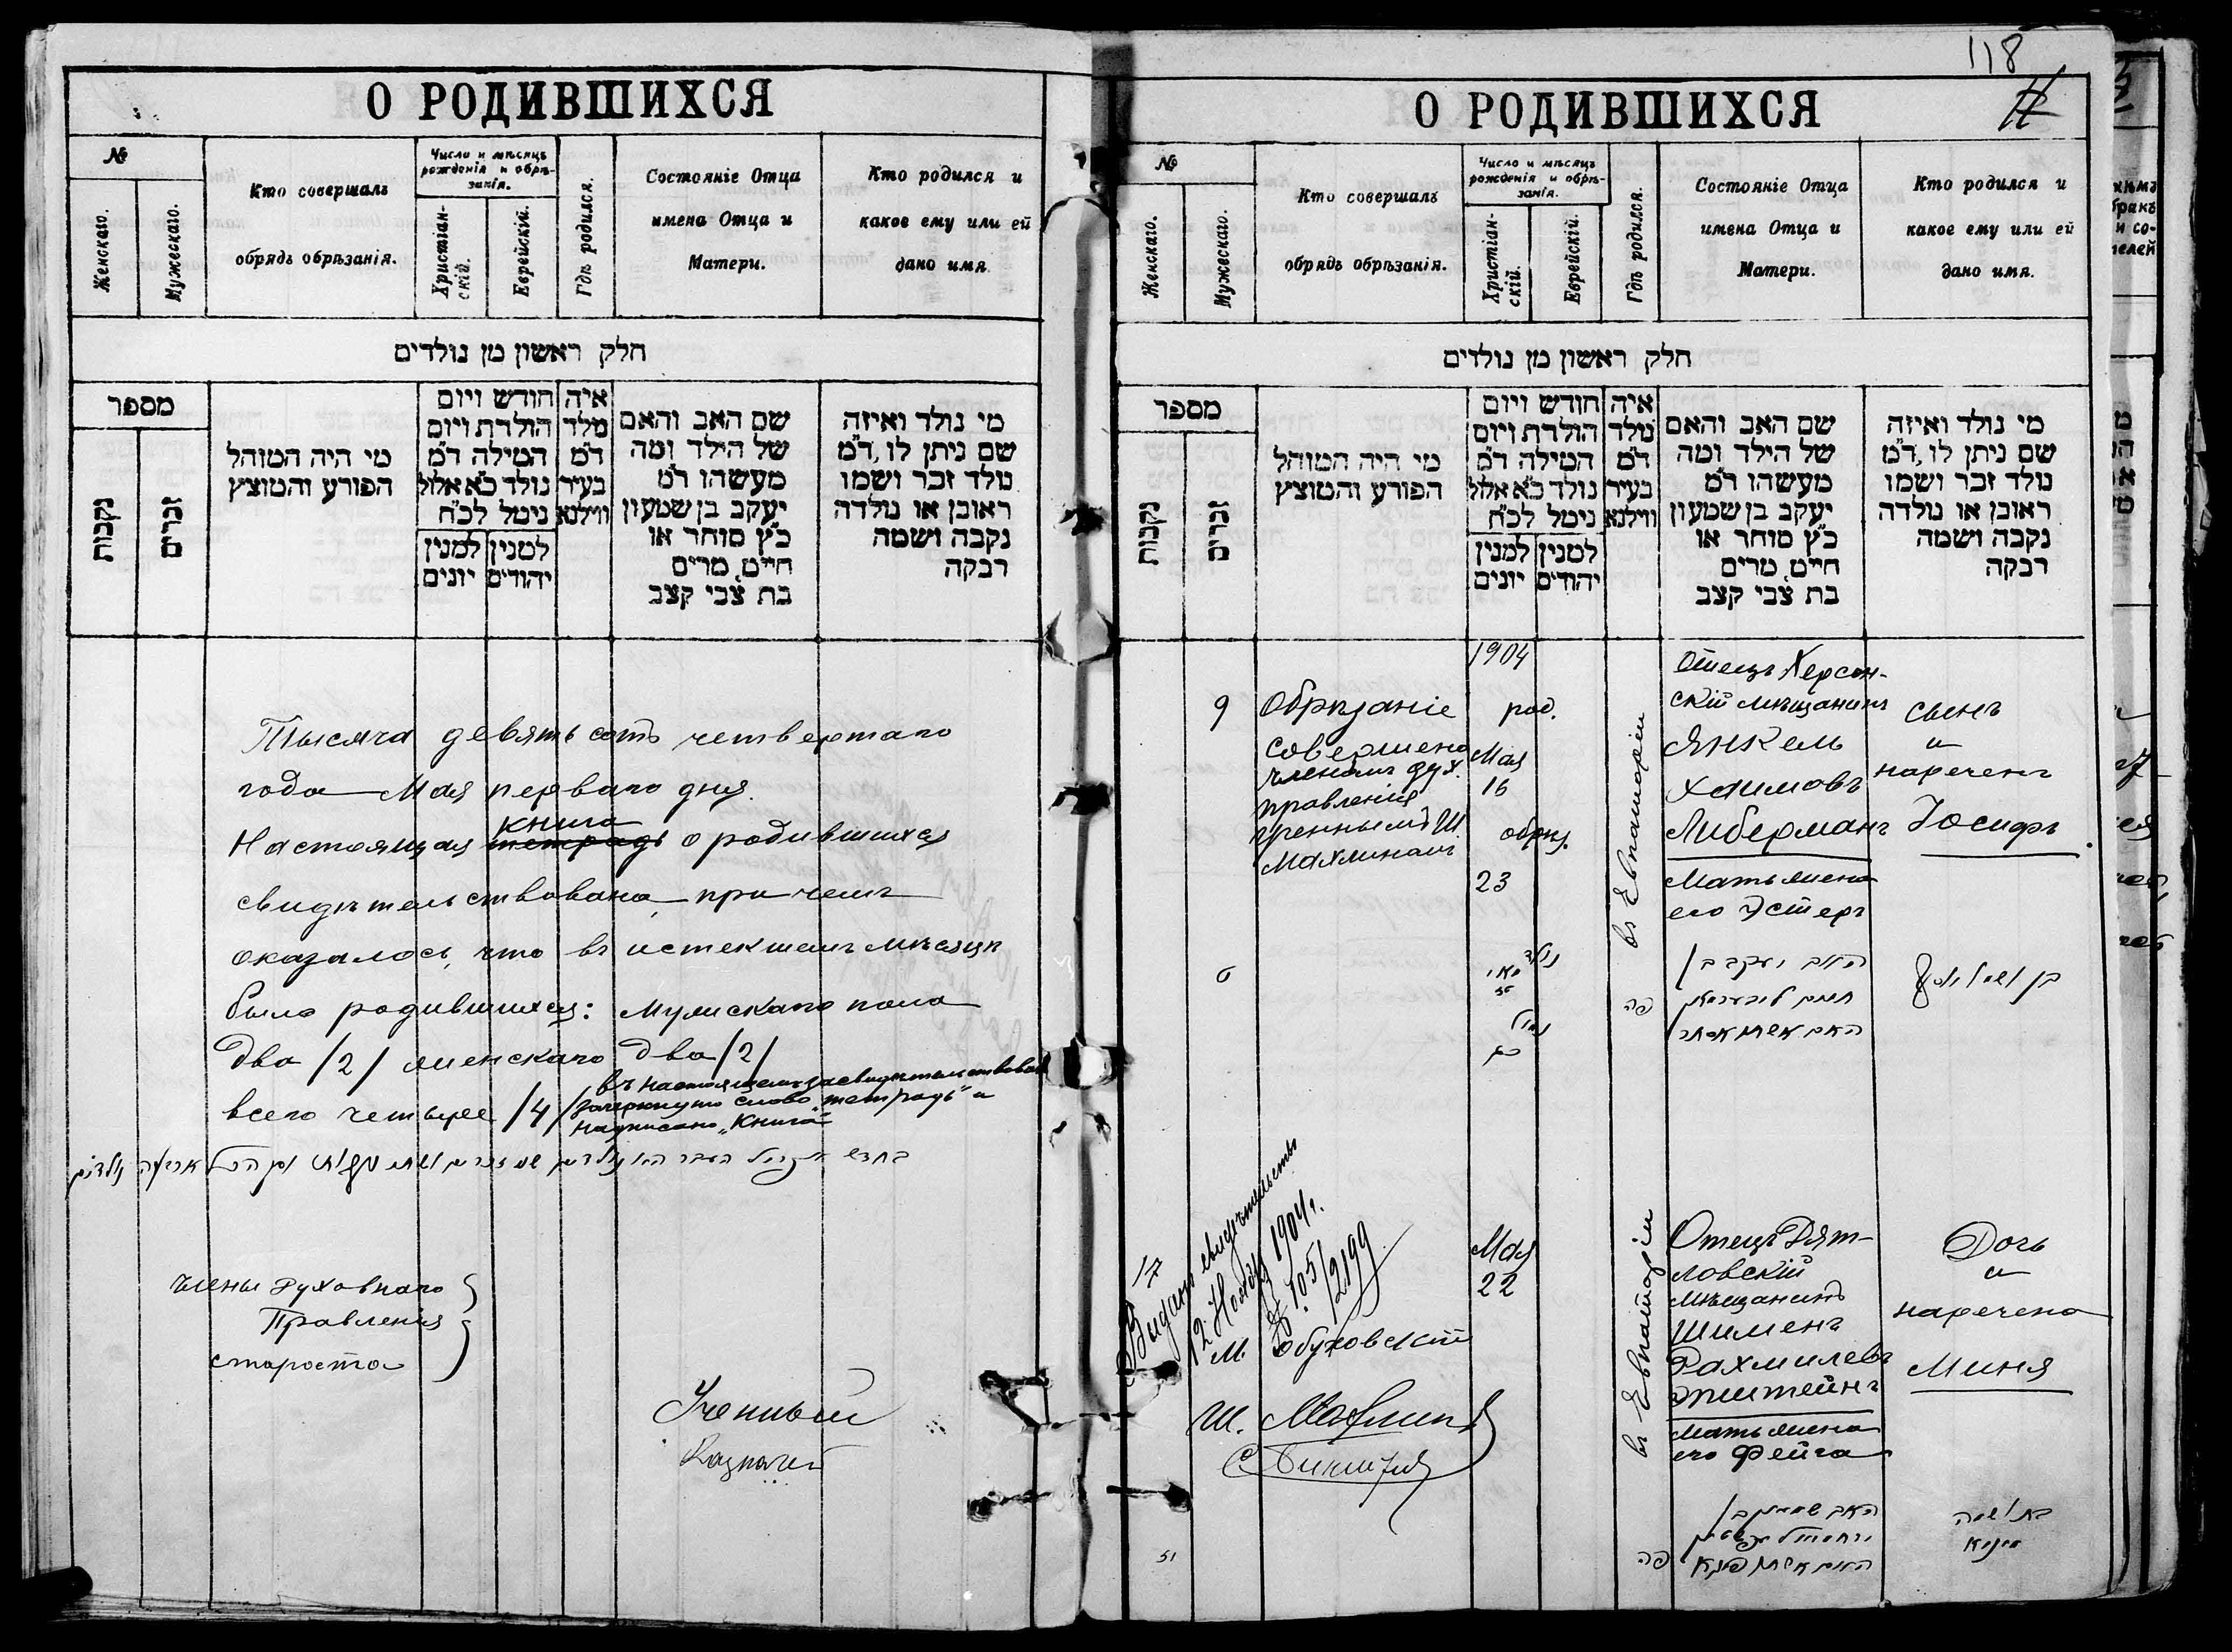 О РОДИВШИХСЯ
№
Женскаго.
Мужескаго.
Кто совершалъ
обрядъ обрѣзанія.
Число и мѣсяцъ
рожденія и обрѣ-
занія.
Христіан-
скій.
Еврейскій.
Гдѣ родился.
Состояніе Отца
имена Отца и
Матери.
Кто родился и
какое ему или ей
дано имя.
חלק ראשון מן נולדים
מספר
נקבות
זכרים
מי היה המוהל
הפורע והמוצץ
חודש ויום
הולדת ויום
המילה ד״מ
נולד כ״א אלול
ניטל לכ״ח
למנין יונים
למנין יהודים
איה
מלד
ד״מ
בעיר
ווילנא
שם האב והאם
של הילד ומה
מעשהו ד״מ
יעקב בן שמעון
כ״ץ סוחר או
חייט, מרים
בת צבי קצב
מי נולד ואיזה
שם ניתן לו, ד״מ
נולד זכר ושמו
ראובן או נולדה
נקבה ושמה
רבקה
Тысяча девятьсотъ четвертаго
года Мая перваго дня.
книга
Настоящая тетрадь о родившихся
свидѣтельствована, при чемъ
оказалось, что въ истекшемъ мѣсяцѣ
было родившихся: мужскаго пола
два /2/ женскаго два /2/
всего четыре /4/
въ настоящемъ засвидетельствован
зачеркнуто слово "тетрадь" и
надписано "Книга"
Члены Духовнаго
Правленія
староста
Ученый
Казначей
118
О РОДИВШИХСЯ
№
Женскаго.
Мужескаго.
Кто совершалъ
обрядъ обрѣзанія.
Число и мѣсяцъ
рожденія и обрѣ-
занія.
Христіан-
скій.
Еврейскій.
Гдѣ родился.
Состояніе Отца
имена Отца и
Матери.
Кто родился и
какое ему или ей
дано имя.
חלק ראשון מן נולדים
מספר
נקבות
זכרים
מי היה המוהל
הפורע והמוצץ
חודש ויום
הולדת ויום
המילה ד״מ
נולד כ״א אלול
ניטל לכ״ח
למנין יונים
למנין יהודים
איה
נולד
ד״מ
בעיר
ווילנא
שם האב והאם
של הילד ומה
מעשהו ד״מ
יעקב בן שמעון
כ״ץ סוחר או
חייט, מרים
בת צבי קצב
מי נולד ואיזה
שם ניתן לו, ד״מ
נולד זכר ושמו
ראובן או נולדה
נקבה ושמה
רבקה
9
Обрѣзаніе
совершено
членомъ дух.
правленія
ученымъ Ш.
Махлинымъ
1904
род.
Мая
16
обрѣз.
23
въ Евпаторіи
Отецъ Херсон-
скій мѣщанинъ
Янкель
Хаимовъ
Либерманъ
Мать жена
его Эстеръ
сынъ
и
нареченъ
Іосифъ
נולד
מאי
נמול
פה
האב יעקב בן
חיים ליבערמאן
האם אשתו אסתר
17
Выдано свидѣтельство
12 Ноября 1904 г.
№ 105/2199
М. Обуховскій
Ш. Махлинъ
Мая
22
въ Евпаторіи
Отецъ Дят-
ловскій
мѣщанинъ
Шименъ
Рахмилевъ
Эпштейнъ
Мать жена
его Фейга
Дочь
и
наречена
Миня
פה
האב שימען בן
האם אשתו פייגא